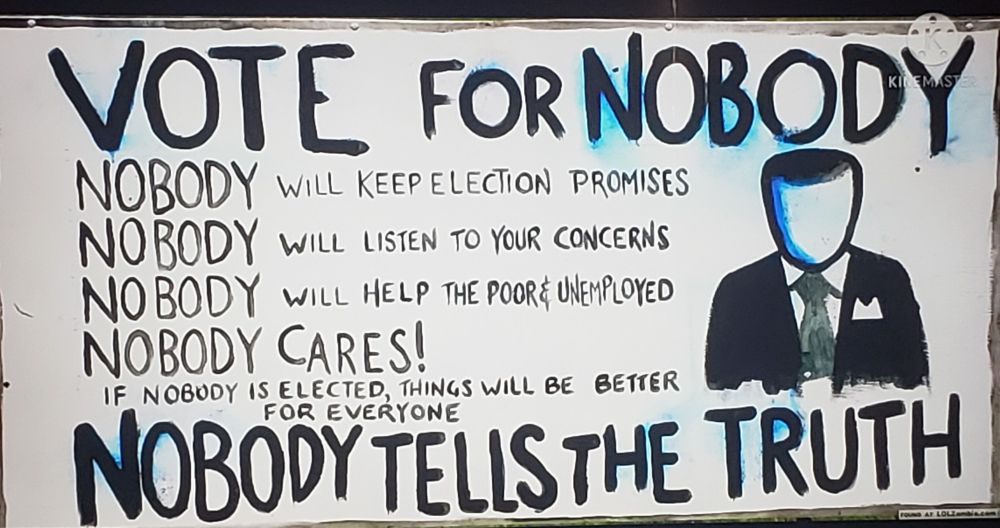 VOTE FOR NOBODY
KINEMASTER
NOBODY WILL KEEP ELECTION PROMISES
NOBODY WILL LISTEN TO YOUR CONCERNS
NOBODY WILL HELP THE POOR & UNEMPLOYED
NOBODY CARES!
IF NOBODY IS ELECTED, THINGS WILL BE BETTER
FOR EVERYONE
NOBODY TELLS THE TRUTH
FOUND AT LOLZombie.com